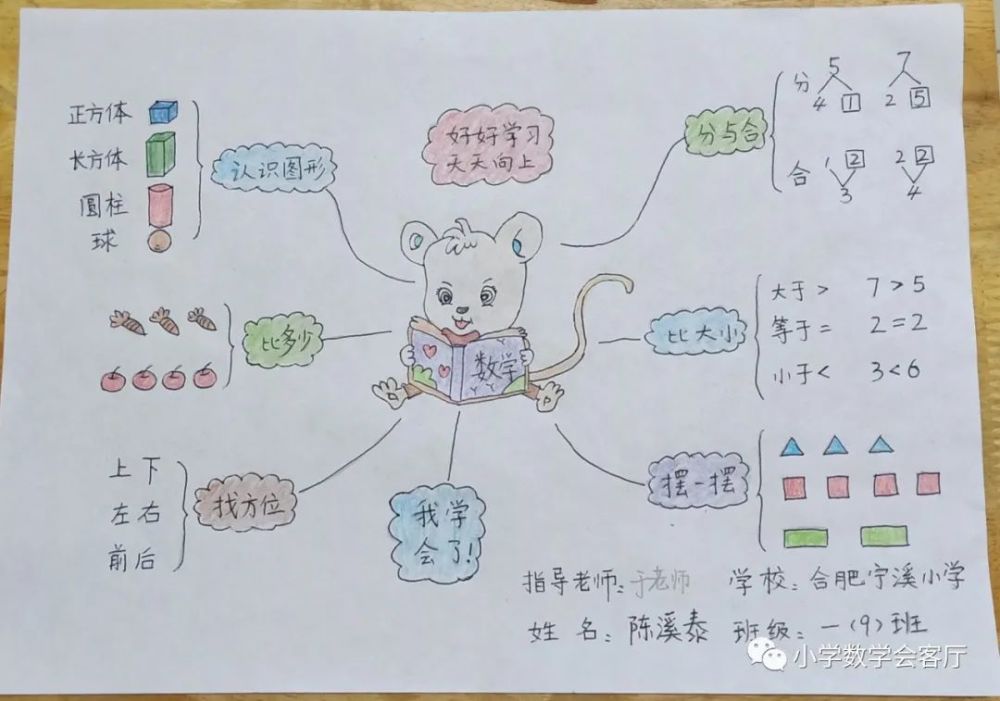 正方体
长方体
圆柱
球
认识图形
好好学习
天天向上
分与合
分
5
4 1
7
2 5
合
1 2
3
2 2
4
比多少
数学
比大小
大于 > 7>5
等于 = 2=2
小于 < 3<6
上下
左右
前后
找方位
我学
会了!
摆一摆
指导老师:于老师 学校:合肥宁溪小学
姓名:陈溪泰 班级:一(9)班
小学数学会客厅